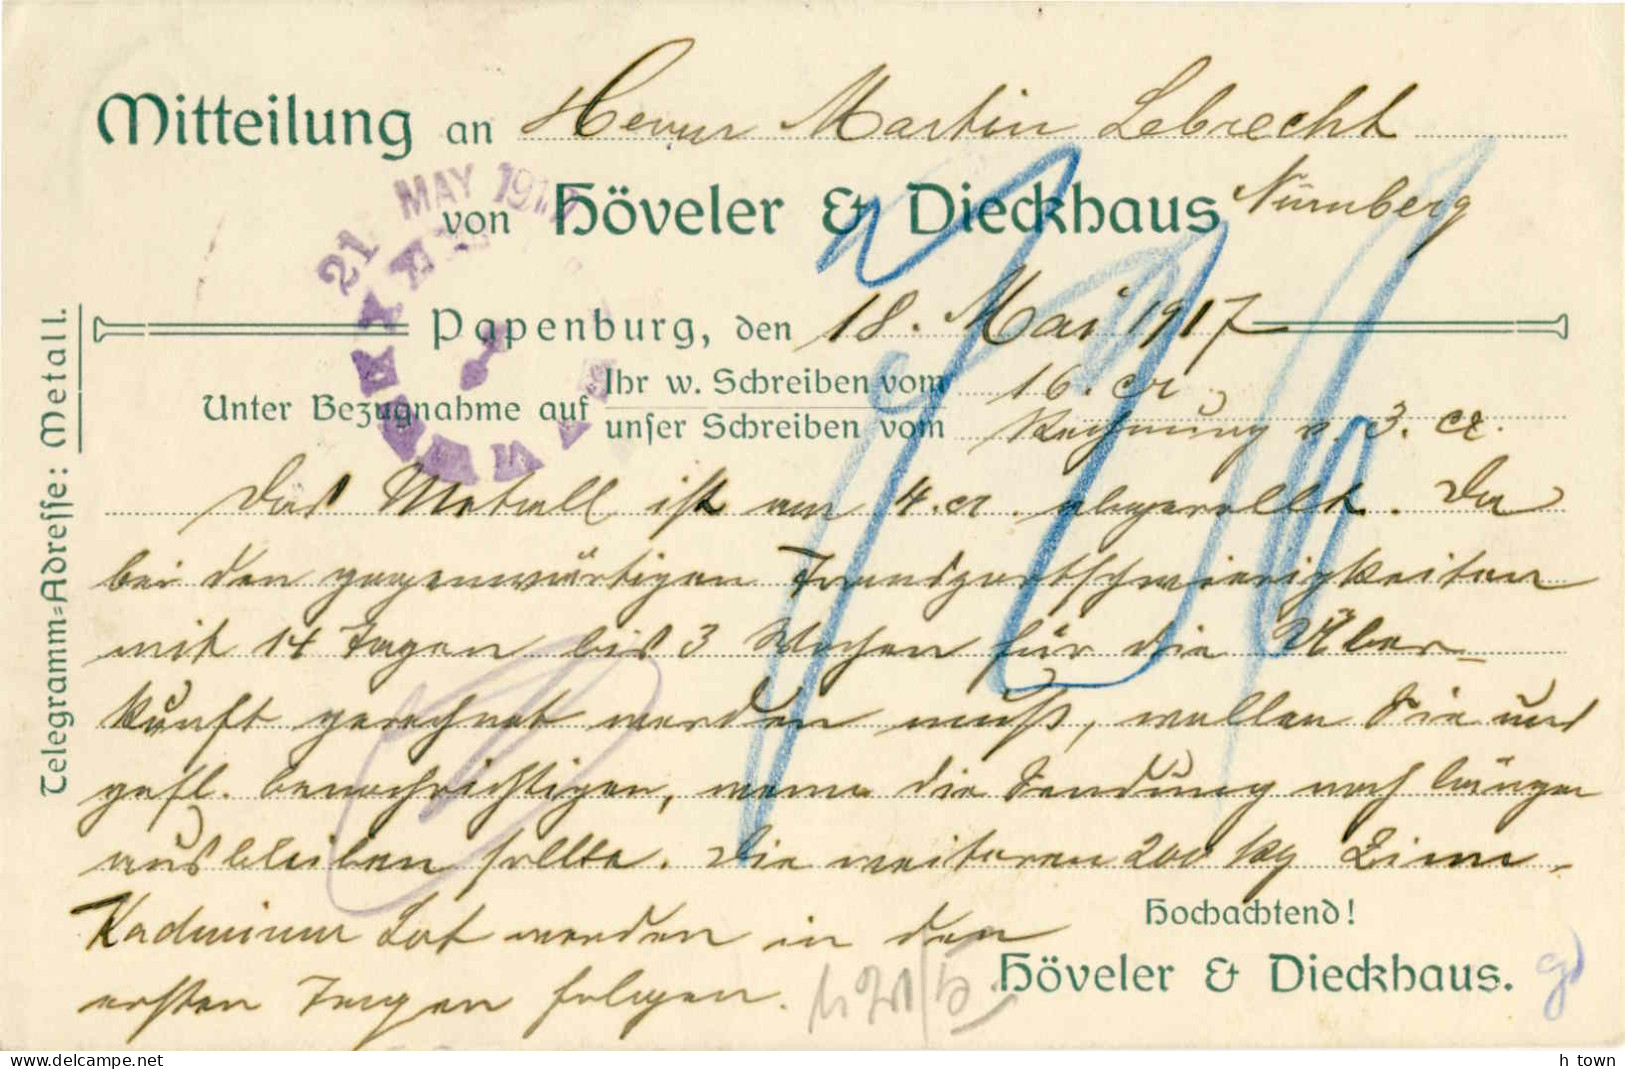 Mitteilung an Herrn Martin Lebrecht
Nürnberg
von Höveler & Dieckhaus
21 MAY 1917
Papenburg, den 18. Mai 1917
Unter Bezugnahme auf
Ihr w. Schreiben vom 16. cr,
unser Schreiben vom Rechnung v. 3. cr.
Telegramm=Adresse: Metall.
Das Metall ist am 4. cr. abgerollt. Da
bei den gegenwärtigen Transportschwierigkeiten
mit 14 Tagen bis 3 Wochen für die Über-
kunft gerechnet werden muß, wollen Sie uns
gefl. benachrichtigen, wenn die Sendung noch länger
ausbleiben sollte. Die weiteren 200 kg Zinn-
Kadmium Lot werden in den
ersten Tagen folgen.
Hochachtend!
Höveler & Dieckhaus.
h town